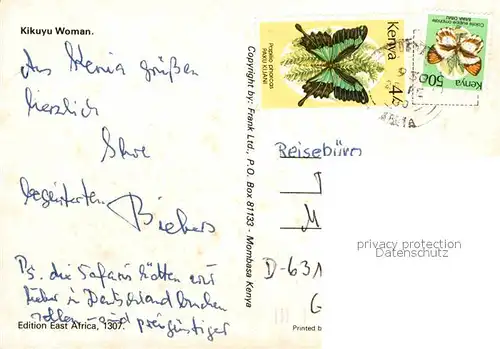 Kikuyu Woman.
Aus Kenia grüßen
herzlich
Ihre
begeisterten
Biebers
PS. die Safaris hätten wir
lieber in Deutschland buchen
sollen - und preisgünstiger
Edition East Africa, 1307.
Copyright by: Frank Ltd., P.O. Box 81133 - Mombasa Kenya
Papilio phorcas
Kenya
4/-
Kenya
50c
Reisebüro
M
privacy protection
Datenschutz
D-631
G
Printed b